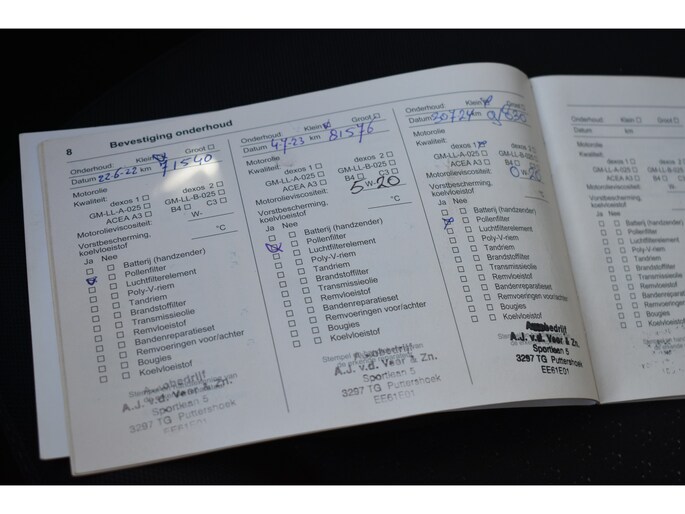 8 Bevestiging onderhoud
Onderhoud: Klein Groot
Datum 22-6-22 km 71540
Motorolie
Kwaliteit: dexos 1 dexos 2
GM-LL-A-025 GM-LL-B-025
ACEA A3 B4 C3
Motorolieviscositeit: W-
Vorstbescherming, koelvloeistof °C
Ja Nee
Batterij (handzender)
Pollenfilter
Luchtfilterelement
Poly-V-riem
Tandriem
Brandstoffilter
Transmissieolie
Remvloeistof
Bandenreparatieset
Remvoeringen voor/achter
Bougies
Koelvloeistof
Autobedrijf
A.J. v.d. Veer & Zn.
Sportlaan 5
3297 TG Puttershoek
EE61E01
Onderhoud: Klein Groot
Datum 4-7-23 km 81576
Motorolie
Kwaliteit: dexos 1 dexos 2
GM-LL-A-025 GM-LL-B-025
ACEA A3 B4 C3
Motorolieviscositeit: 5 W-20
Vorstbescherming, koelvloeistof °C
Ja Nee
Batterij (handzender)
Pollenfilter
Luchtfilterelement
Poly-V-riem
Tandriem
Brandstoffilter
Transmissieolie
Remvloeistof
Bandenreparatieset
Remvoeringen voor/achter
Bougies
Koelvloeistof
Autobedrijf
A.J. v.d. Veer & Zn.
Sportlaan 5
3297 TG Puttershoek
EE61E01
Onderhoud: Klein Groot
Datum 20724 km
Motorolie
Kwaliteit: dexos 1 dexos 2
GM-LL-A-025 GM-LL-B-025
ACEA A3 B4 C3
Motorolieviscositeit: 0 W-20
Vorstbescherming, koelvloeistof °C
Ja Nee
Batterij (handzender)
Pollenfilter
Luchtfilterelement
Poly-V-riem
Tandriem
Brandstoffilter
Transmissieolie
Remvloeistof
Bandenreparatieset
Remvoeringen voor/achter
Bougies
Koelvloeistof
Autobedrijf
A.J. v.d. Veer & Zn.
Sportlaan 5
3297 TG Puttershoek
EE61E01
Onderhoud: Klein
Datum km
Motorolie
Kwaliteit: dexos 1
GM-LL-A-025
ACEA A3
Motorolieviscositeit:
Vorstbescherming, koelvloeistof
Ja Nee
Batterij (handz
Pollenfilter
Luchtfilterele
Poly-V-riem
Tandriem
Brandstoffi
Transmiss
Remvloei
Bandenr
Remvoe
Bougie
Koelvl